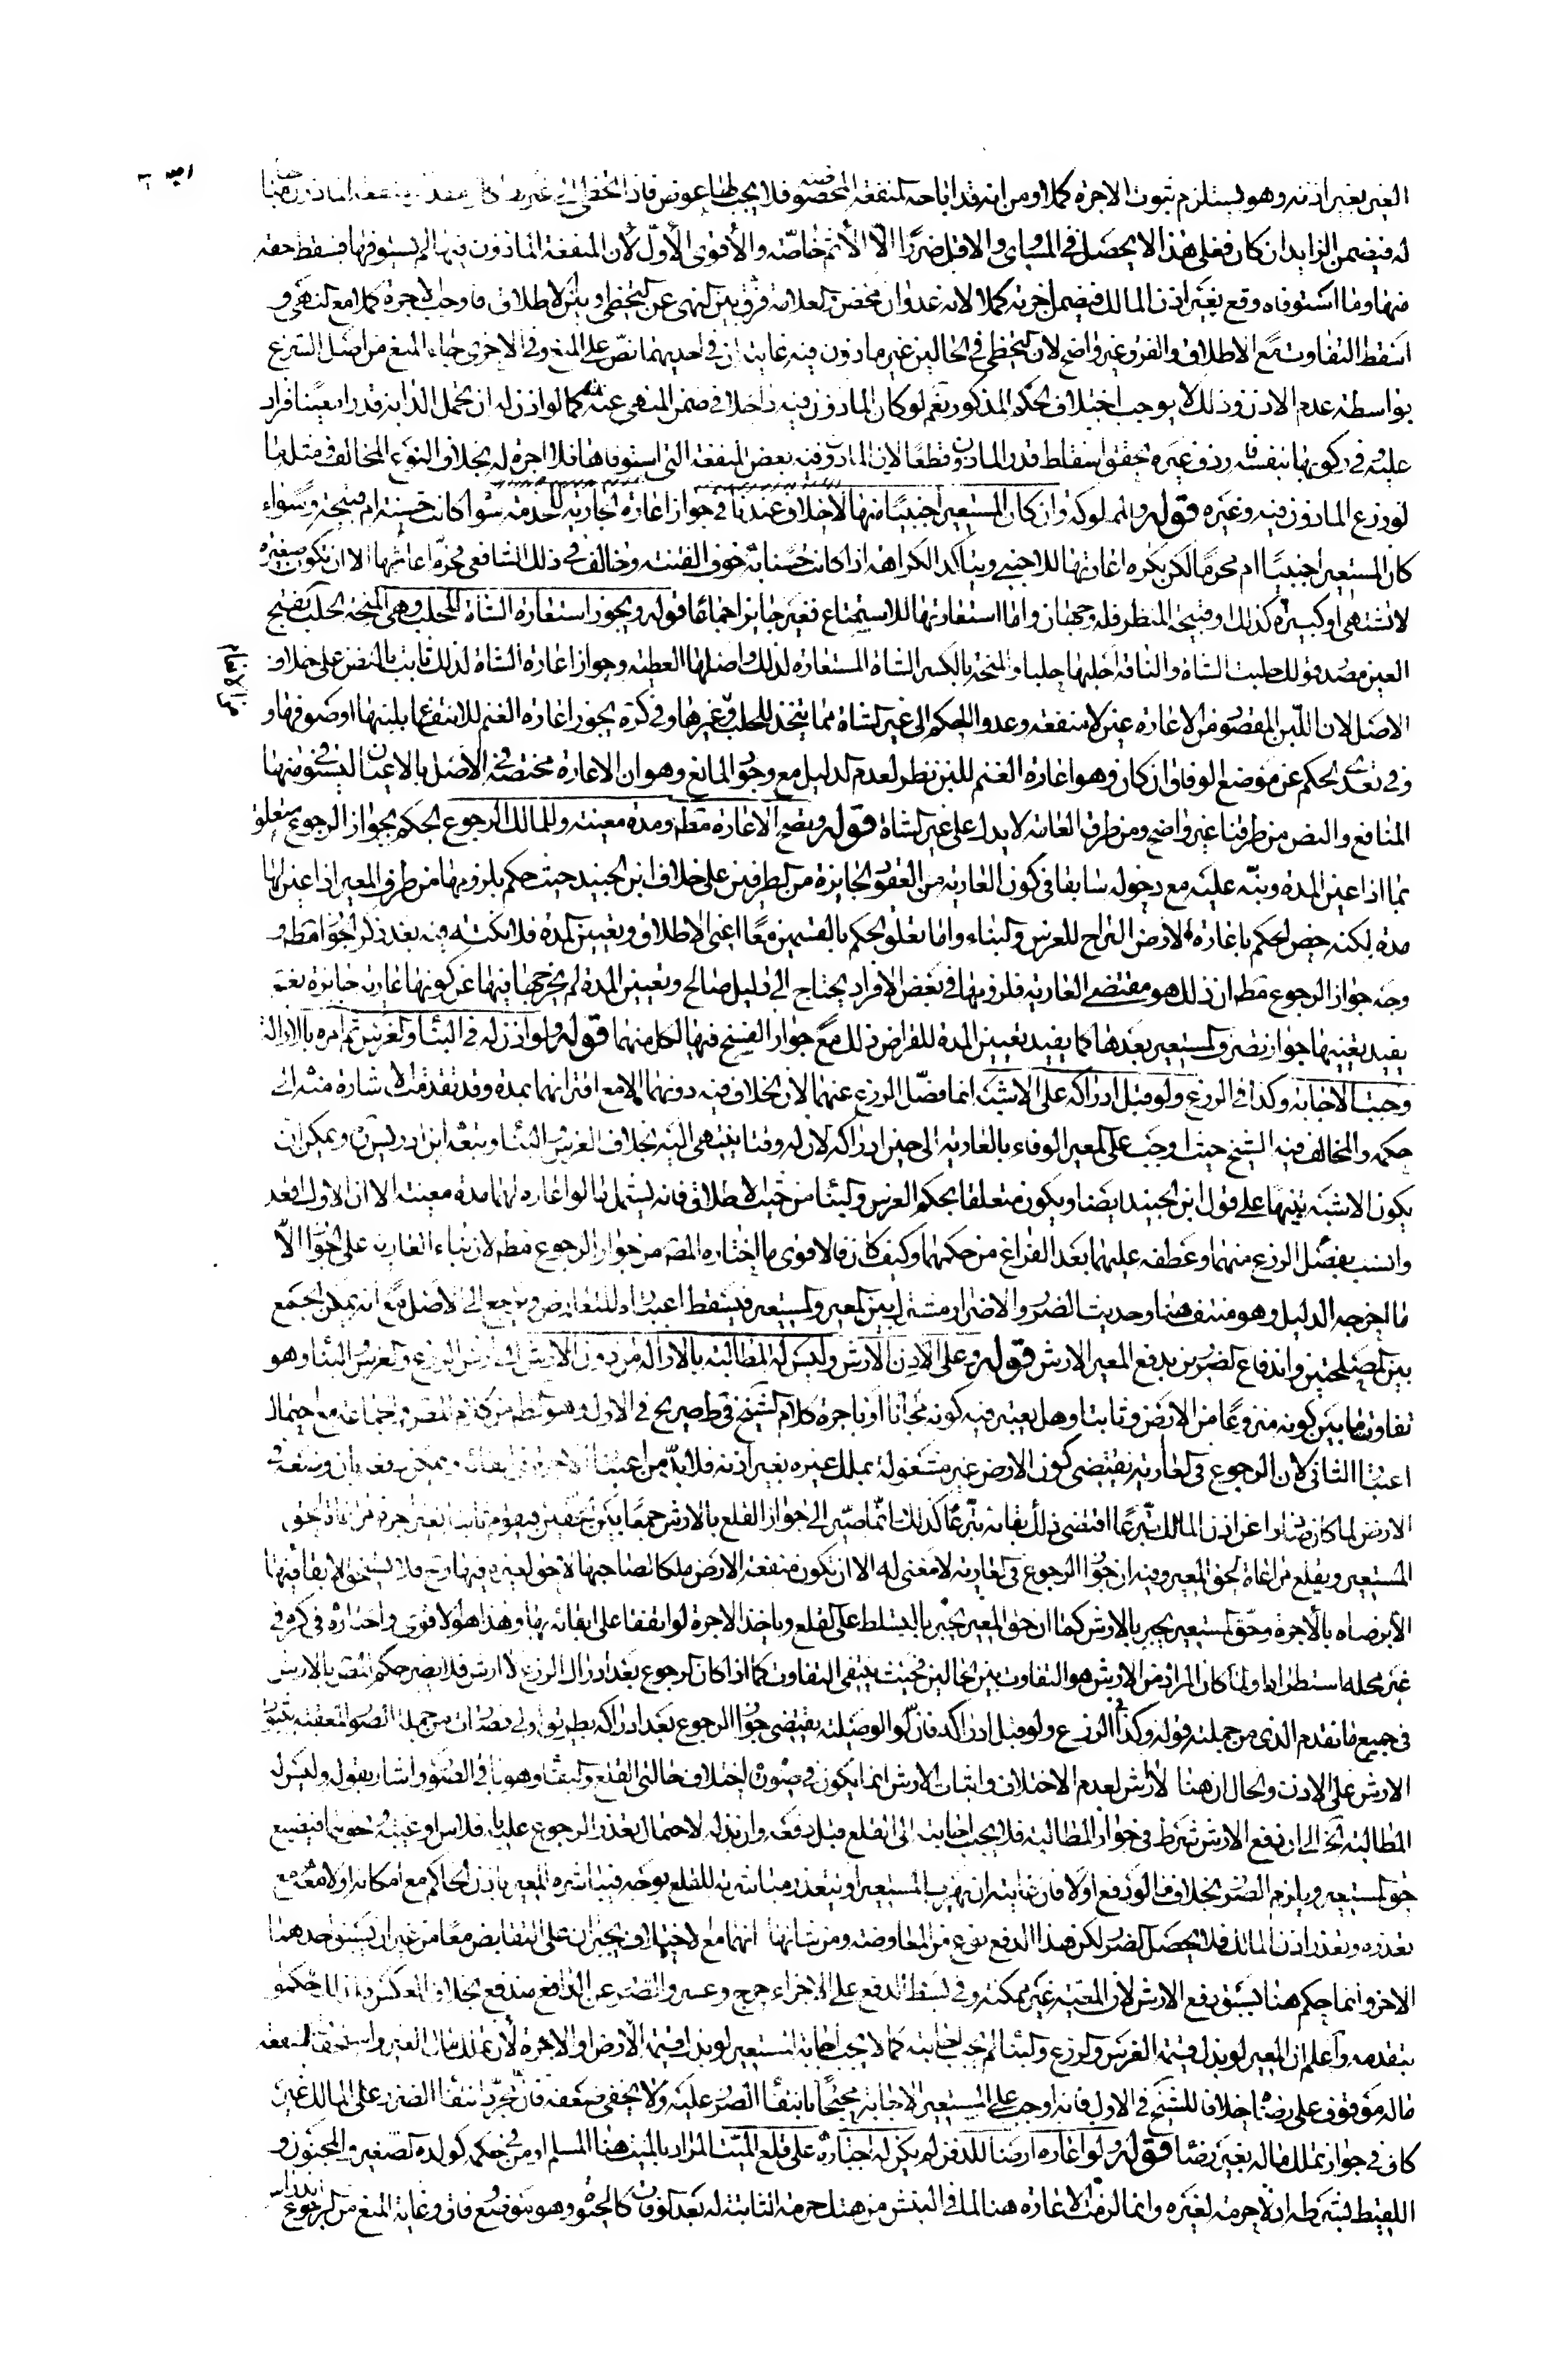 الغير بغير اذنه وهو يستلزم ثبوت الاجرة كملا ومن انه قد اباحه المنفعة المخصوصة فلا يجب لها عوض فاذا تخطى الى غيرها كان
له فيضمن الزايد ان كان فعلى هذا لا يحصل في المساوي والاقل ضررا الا الاثم خاصة والاقوى الاول لان المنفعة الماذون فيها لم يستوفها فسقط حقه
منها وما استوفاه وقع بغير اذن المالك فيضمن اجرته كملا لانه عدوان محض والعلامة فرق بين النهي عن التخطي وبين الاطلاق فاوجب الاجرة كملا مع النهي و
اسقط التفاوت مع الاطلاق والفرق غير واضح لان التخطي في الحالين غير ماذون فيه غايته ان في احديهما نص على المنع وفي الاخرى جاء المنع من اصل الشرع
بواسطة عدم الاذن وذلك لا يوجب اختلاف الحكم المذكور نعم لو كان الماذون فيه داخلا في ضمن المنهي عنه كما لو اذن له ان يحمل الدابة قدرا معينا فزاد
عليه او في ركوبها بنفسه فاردف غيره تحقق اسقاط قدر الماذون قطعا لان الماذون فيه بعض المنفعة التي استوفاها فلا اجرة له بخلاف النوع المخالف في مثل ما
لو زرع الماذون فيه وغيره قوله والمملوكة وان كان المستعير اجنبيا منها لا خلاف عندنا في جواز اعارة الجارية للخدمة سواء كانت حسنة ام قبيحة وسواء
كان المستعير اجنبيا ام محرما لكن يكره اعارتها للاجنبي ويتاكد الكراهة اذا كانت حسناء خوف الفتنة وخالف في ذلك الشافعي فحرم اعارتها الا ان تكون صغيرة
لا تشتهى او كبيرة كذلك او قبيحة المنظر فله وجهان واما استعارتها للاستمتاع فغير جايز اجماعا قوله ويجوز استعارة الشاة للحلب وهي المنحة الحلب بفتح
العين مصدر قولك حلبت الشاة والناقة احلبها حلبا والمنحة بالكسر الشاة المستعارة لذلك واصلها العطية وجواز اعارة الشاة لذلك ثابت بالنص على خلاف
الاصل لان اللبن المقصود من الاعارة عين لا منفعة وعدوا الحكم الى غير الشاة مما يتخذ للحلب وغيرها وفي كره يجوز اعارة الغنم للانتفاع بلبنها وصوفها و
وفي تعدي الحكم عن موضع الوفاق ان كان وهو اعارة الغنم للبن نظر لعدم الدليل مع وجود المانع وهو ان الاعارة مختصة في الاصل بالاعيان ليستوفى منها
المنافع والنص من طرقنا غير واضح ومن طرق العامة لا يدل على غير الشاة قوله وتصح الاعارة مطم ومدة معينة وللمالك الرجوع الحكم بجواز الرجوع يتعلق
بما اذا عين المدة ونبه عليه مع دخوله سابقا في كون العارية من العقود الجايزة من الطرفين على خلاف ابن الجنيد حيث حكم بلزومها من طرف المعير اذا عين لها
مدة لكنه خص الحكم باعارة الارض البراح للغرس والبناء واما تعلق الحكم بالقسمين معا اعني الاطلاق وتعيين المدة فلا نكتة فيه بعد ذكر الجواز مطم و
وجه جواز الرجوع مطم ان ذلك هو مقتضى العارية فلزومها في بعض الافراد يحتاج الى دليل صالح وتعيين المدة لم يخرجها فيها عن كونها عارية جايزة نعم
يفيد تعيينها جواز تصرف المستعير بعدها كما يفيد تعيين المدة للقراض ذلك مع جواز الفسخ فيها لكل منهما قوله ولو اذن له في البناء او الغرس ثم امره بالازالة
وجبت الاجابة وكذا في الزرع ولو قبل ادراكه على الاشبه انما فصل الزرع عنهما لان الخلاف فيه دونهما الا مع اقترانهما بمدة وقد تقدمت الاشارة منه الى
حكمه والمخالف فيه الشيخ حيث اوجب على المعير الوفاء بالعارية الى حين ادراكه لان له وقتا ينتهي اليه بخلاف الغرس والبناء وتبعه ابن ادريس ويمكن ان
يكون الاشبه تنبيها على قول ابن الجنيد ايضا ويكون متعلقا بحكم الغرس والبناء من حيث الاطلاق فانه يشمل ما لو اعاره لهما مدة معينة الا ان الاول اقعد
وانسب بفصل الزرع منهما وعطفه عليهما بعد الفراغ من حكمهما وكيف كان فالاقوى ما اختاره المصـ من جواز الرجوع مطم لان بناء العارية على الجواز الا
ما اخرجه الدليل وهو منتف هنا وحديث الضرر والاضرار مشترك بين المعير والمستعير فيسقط اعتباره للتعارض ونرجع الى الاصل مع انه يمكن الجمع
بين المصلحتين واندفاع الضررين بدفع المعير الارش قوله وعلى الاذن الارش وليس له المطالبة بالازالة من دون الارش الارش الزرع والغرس والبناء وهو
تفاوت ما بين كونه منزوعا من الارض وثابتا وهل يعتبر فيه كونه مجانا او باجرة كلام الشيخ في ط صريح في الاول وهو الظم من كلام المصـ وجماعة مع احتمال
اعتبار الثاني لان الرجوع في العارية يقتضي كون الارض غير مشغولة بملك غيره بغير اذنه فلا بد من اعتبار الاجرة في ابقائه ويمكن دفعه بان وضعه في
الارض لما كان صادرا عن اذن المالك تبرعا اقتضى ذلك بقائه تبرعا كذلك انما صير الى جواز القلع بالارش جمعا بين الحقين فيقوم ثابتا بغير اجرة مراعاة لحق
المستعير ويقلع مراعاة لحق المعير وفيه ان جواز الرجوع في العارية لا معنى له الا ان تكون منفعة الارض ملكا لصاحبها لا حق لغيره فيها وح فلا يستحق الابقاء فيها
الا برضاه بالاجرة وحق المستعير يجبر بالارش كما ان حق المعير يجبر بالتسلط على القلع وباخذ الاجرة لو اتفقا على ابقائه بها وهذا هو الاقوى واختاره في كره في
غير محله استطرادا ولما كان المراد من الارش هو التفاوت بين الحالين فحيث ينتفي التفاوت كما اذا كان الرجوع بعد ادراك الزرع لا ارش فلا يضر حكم المصـ بالارش
في جميع ما تقدم الذي من جملته قوله وكذا في الزرع ولو قبل ادراكه فان لو الوصلية يقتضي جواز الرجوع بعد ادراكه بطريق اولى من جملة الصور المعقبة بثبوت
الارش على الاذن والحال ان هنا لا ارش لعدم الاختلاف واثبات الارش انما يكون في صورة اختلاف حالتي القلع والبقاء وهو باقي الصور واشار بقوله وليس له
المطالبة الخ الى ان دفع الارش شرط في جواز المطالبة فلا يجب اجابته الى القلع قبل دفعه وان بذله لاحتمال تعذر الرجوع عليه بافلاس او غيبة ونحوهما فيضيع
حق المستعير ويلزم الضرر بخلاف ما لو دفع اولا فان غايته ان يهرب المستعير او يتعذر مباشرته للقلع بوجه فيباشره المعير باذن الحاكم مع امكانه او لا معه مع
تعذره وتعذر اذن المالك فلا يحصل الضرر لكن هذا الدفع نوع من المعاوضة ومن شانها انهما مع الاختلاف يجبران على التقابض معا من غير ان يسبق احدهما
الاخر وانما حكم هنا بسبق دفع الارش لان المعية غير ممكنة وفي تبسط الدفع على الاجزاء حرج وعسر والضرر عن الدافع مندفع بخلاف العكس فلذلك حكموا
بتقدمه واعلم ان المعير لو بذل قيمة الغرس والزرع والبناء لم يجب اجابته كما لا يجب اجابة المستعير لو بذل قيمة الارض او الاجرة لان تملك مال الغير واستحقاق منفعة
ماله موقوف على رضاه خلافا للشيخ في الاول فانه اوجب على المستعير الاجابة محتجا بانتفاء الضرر عليه ولا يخفى ضعفه فان مجرد انتفاء الضرر على المالك غير
كاف في جواز تملك ماله بغير رضا قوله ولو اعاره ارضا للدفن لم يكن له اجباره على قلع الميت المراد بالميت هنا المسلم ومن في حكمه كولده الصغير والمجنون و
اللقيط بشرطه اذ لا حرمة لغيره وانما لزمت الاعارة هنا لما في النبش من هتك حرمته الثابتة له بعد الوفاة كالحيوة وهو موضع وفاق وغاية المنع من الرجوع